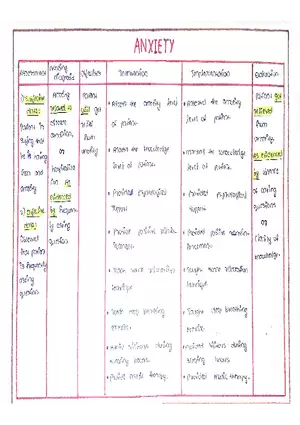 ANXIETY
Assessment
Nursing
diagnosis
Objective
Intervention
Implementation
Evaluation
1) Subjective
data:-
Patient is
saying that
he is having
from and
anxiety
2) objective
data:-
Observed
that patient
is frequently
asking
question
Anxiety
related to
disease
condition,
or
hospitaliza-
tion as
evidenced
by frequen-
tly asking
question
Patient
will get
relief
from
anxiety
• Assess the anxiety level
of patient.
• Assess the knowledge
level of patient.
• Provided psychological
support
• Provide positive reinfor-
• Teach relaxation
technique
• Teach deep breathing
exercise.
during
hours.
• Provide music therapy.
• Assessed the anxiety
level of patient.
• Assessed the knowledge
level of patient.
• Provided psychological
support
• Provided positive reinfor-
cement.
• Taught relaxation
technique.
• Taught deep breathing
exercise.
during
hours
• Provided music therapy.
Patient got
relieved
from
anxiety.
As evidenced
by absence
of asking
questions
or
clarity of
knowledge.